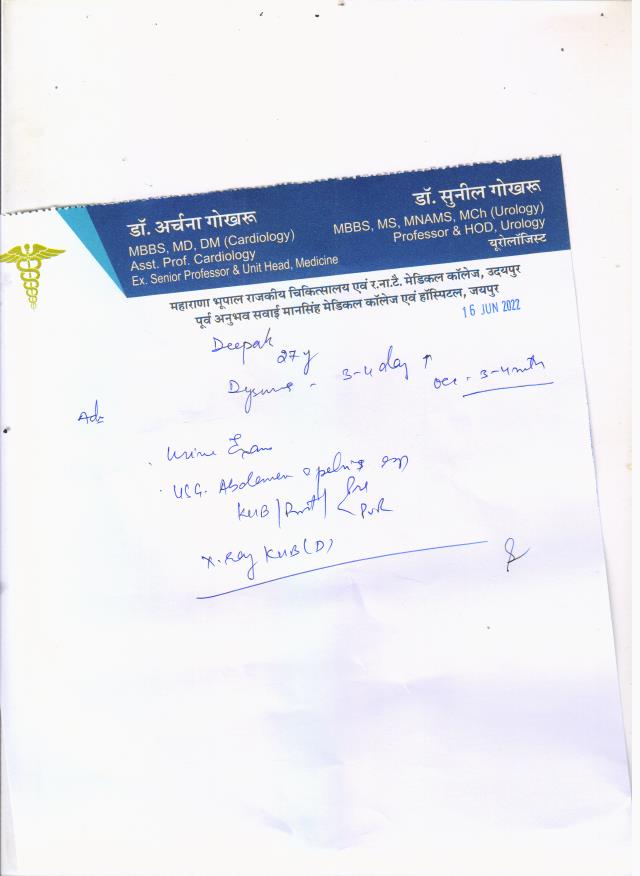 डॉ. अर्चना गोखरू
MBBS, MD, DM (Cardiology)
Asst. Prof. Cardiology
Ex. Senior Professor & Unit Head, Medicine
डॉ. सुनील गोखरू
MBBS, MS, MNAMS, MCh (Urology)
Professor & HOD, Urology
यूरोलॉजिस्ट
महाराणा भूपाल राजकीय चिकित्सालय एवं र.ना.टै. मेडिकल कॉलेज, उदयपुर
पूर्व अनुभव सवाई मानसिंह मेडिकल कॉलेज एवं हॉस्पिटल, जयपुर
16 JUN 2022
Deepak
27y
3-4 day ↑
occ - 3-4 mth
Adv
Urine Exam
USG. Abdomen & pelvis esp
KUB / Prost / Pre
PVR
X-Ray KUB (D)